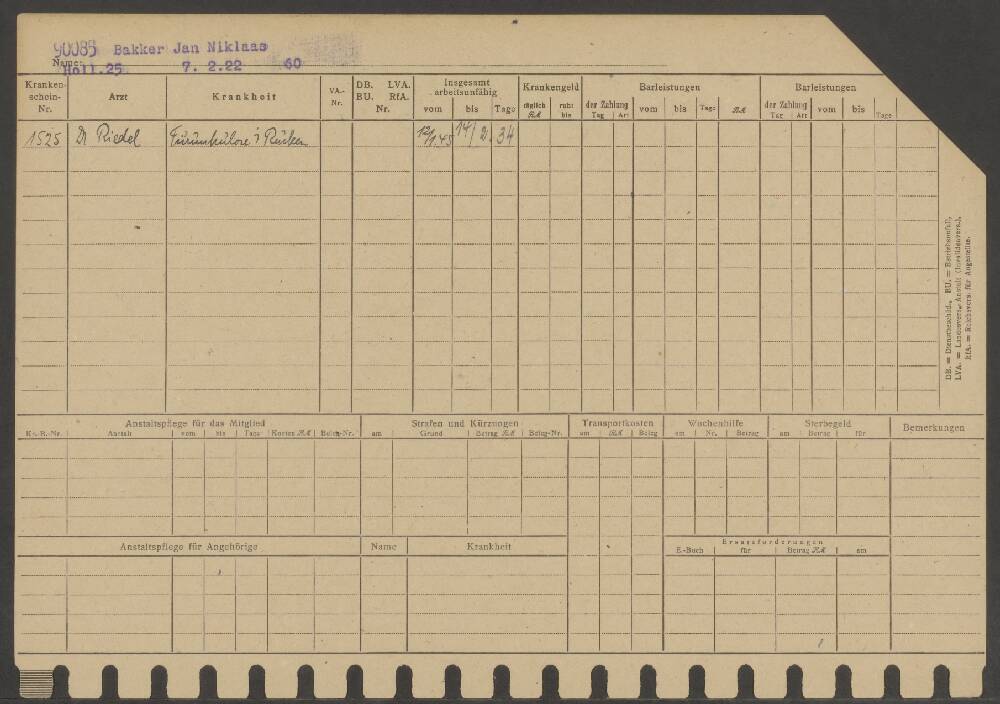 90085 Bakker Jan Niklaas
Name: Holl.25 7. 2.22 60
Kranken- schein- Nr. Arzt Krankheit VA.- Nr. DB. BU. LVA. RfA. Nr. Insgesamt arbeitsunfähig vom bis Tage Krankengeld täglich RM ruht bis Barleistungen der Zahlung Tag Art vom bis Tage RM Barleistungen der Zahlung Tag Art vom bis Tage
1525 Dr Riedel Furunkulose i Rücken 12/1.45 14/2. 34
DB. = Dienstbeschäd., BU. = Betriebsunfall,
LVA. = Landesvers.-Anstalt (Invalidenvers.),
RfA. = Reichsvers. für Angestellte.
Anstaltspflege für das Mitglied Strafen und Kürzungen Transportkosten Wochenhilfe Sterbegeld Bemerkungen
Kr.-B.-Nr. Anstalt vom bis Tage Kosten RM Beleg-Nr. am Grund Betrag RM Beleg-Nr. am RM Beleg am Nr. Betrag am Betrag für
Anstaltspflege für Angehörige Name Krankheit Ersatzforderungen
E.-Buch für Betrag RM am